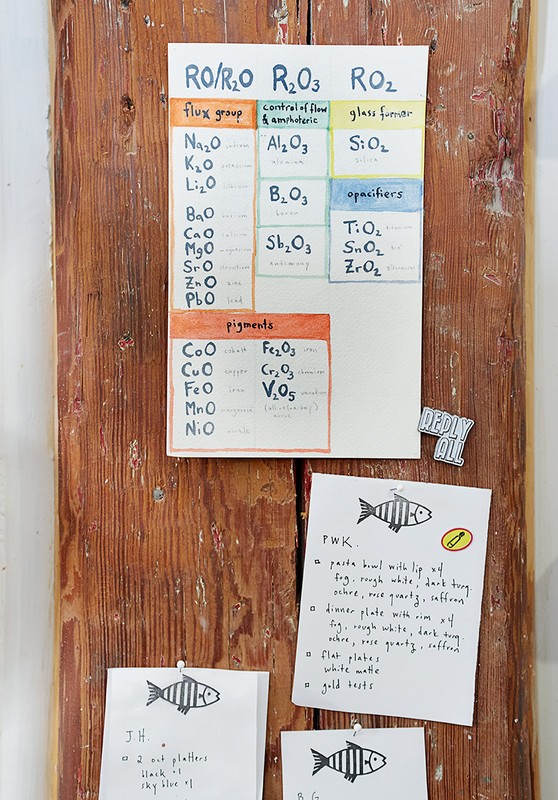 RO/R₂O R₂O₃ RO₂
flux group
Na₂O sodium
K₂O potassium
Li₂O lithium
BaO barium
CaO calcium
MgO magnesium
SrO strontium
ZnO zinc
PbO lead
control of flow
& amphoteric
Al₂O₃
alumina
B₂O₃
boron
Sb₂O₃
antimony
glass former
SiO₂
silica
opacifiers
TiO₂ titanium
SnO₂ tin
ZrO₂
pigments
CoO cobalt
CuO copper
FeO iron
MnO manganese
NiO nickle
Fe₂O₃ iron
Cr₂O₃ chromium
V₂O₅
REPLY
ALL
PWK.
pasta bowl with lip x4
fog, rough white, dark turq.
ochre, rose quartz, saffron
dinner plate with rim x4
fog, rough white, dark turq.
ochre, rose quartz, saffron
flat plates
white matte
gold tests
J.H.
2 oct platters
black x1
sky blue x1
B.G.